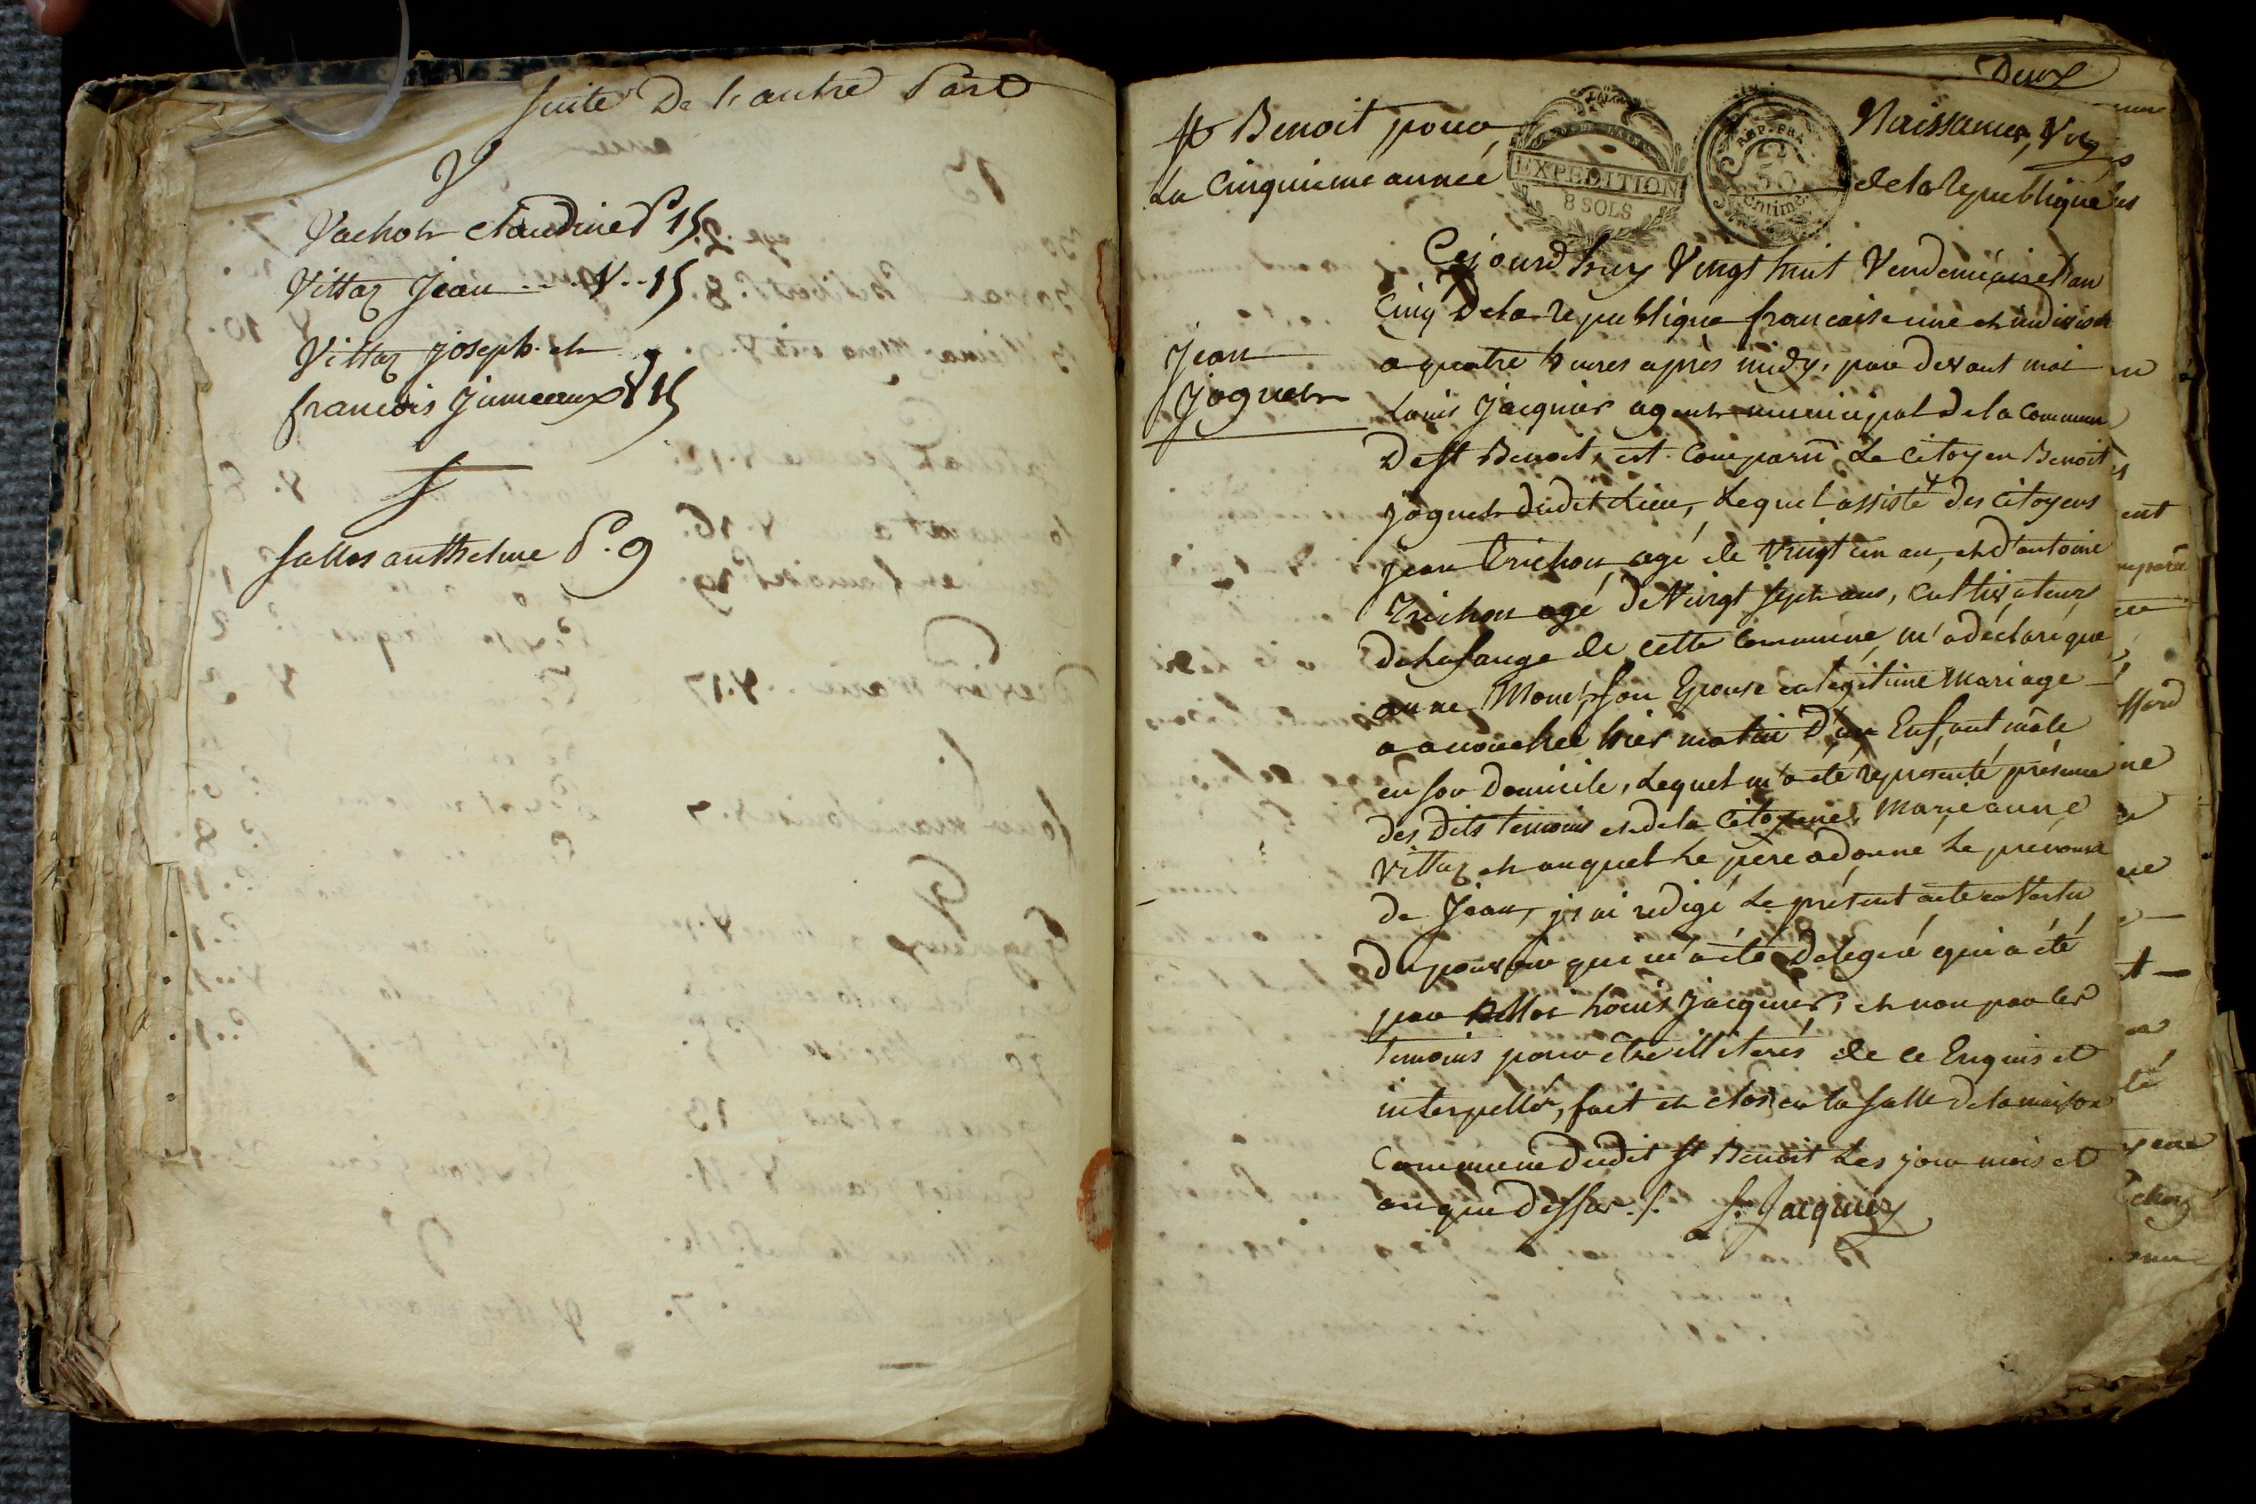 Suite De l'autre Part
V
Vachot claudine P 15
Vittoz Jean .... V .. 15
Vittoz joseph et
francois jumeaux V 15
S
Sallos anthelme P. 9
Deux
St Benoit pour
La Cinquieme année
EXPEDITION
8 SOLS
REP. FRA.
50
Centimes
Naissances, V
de la republique
Jean
Joguet
Cejourd huy Vingt huit Vendemiaire L'an
Cinq De la republique francaise une et indivisible
a quatre heures après midy, par devant moi
Louis Jacquier agent municipal De la Commune
De St Benoit, est Comparû Le Citoyen Benoit
joguet dudit Lieu, Lequel assisté des Citoyens
jean Trichon agé de Vingt un an, et d'antoine
Trichon agé De Vingt sept ans, Cultivateurs
de La fange de cette Commune, m'a déclaré que
anne Monet, son Epouse en legitime Mariage
a accouchée hier matin D'un Enfant mâle
en son Domicile, Lequel m'a été representé présence
des Dits temoins et de la Citoyene Marie anne
Vittoz et auquel Le père a donné Le prénom
de Jean, j'ai redigé Le présent acte en Vertu
Du pouvoir qui m'a été Delegué qui a été
par Moi Louis jacquier, et non par les
temoins pour être illiterés de ce Enquis et
interpellés, fait et clos en la salle de la maison
Commune dudit St Benoit Les jour mois et
an que Dessus ./. Jacquier